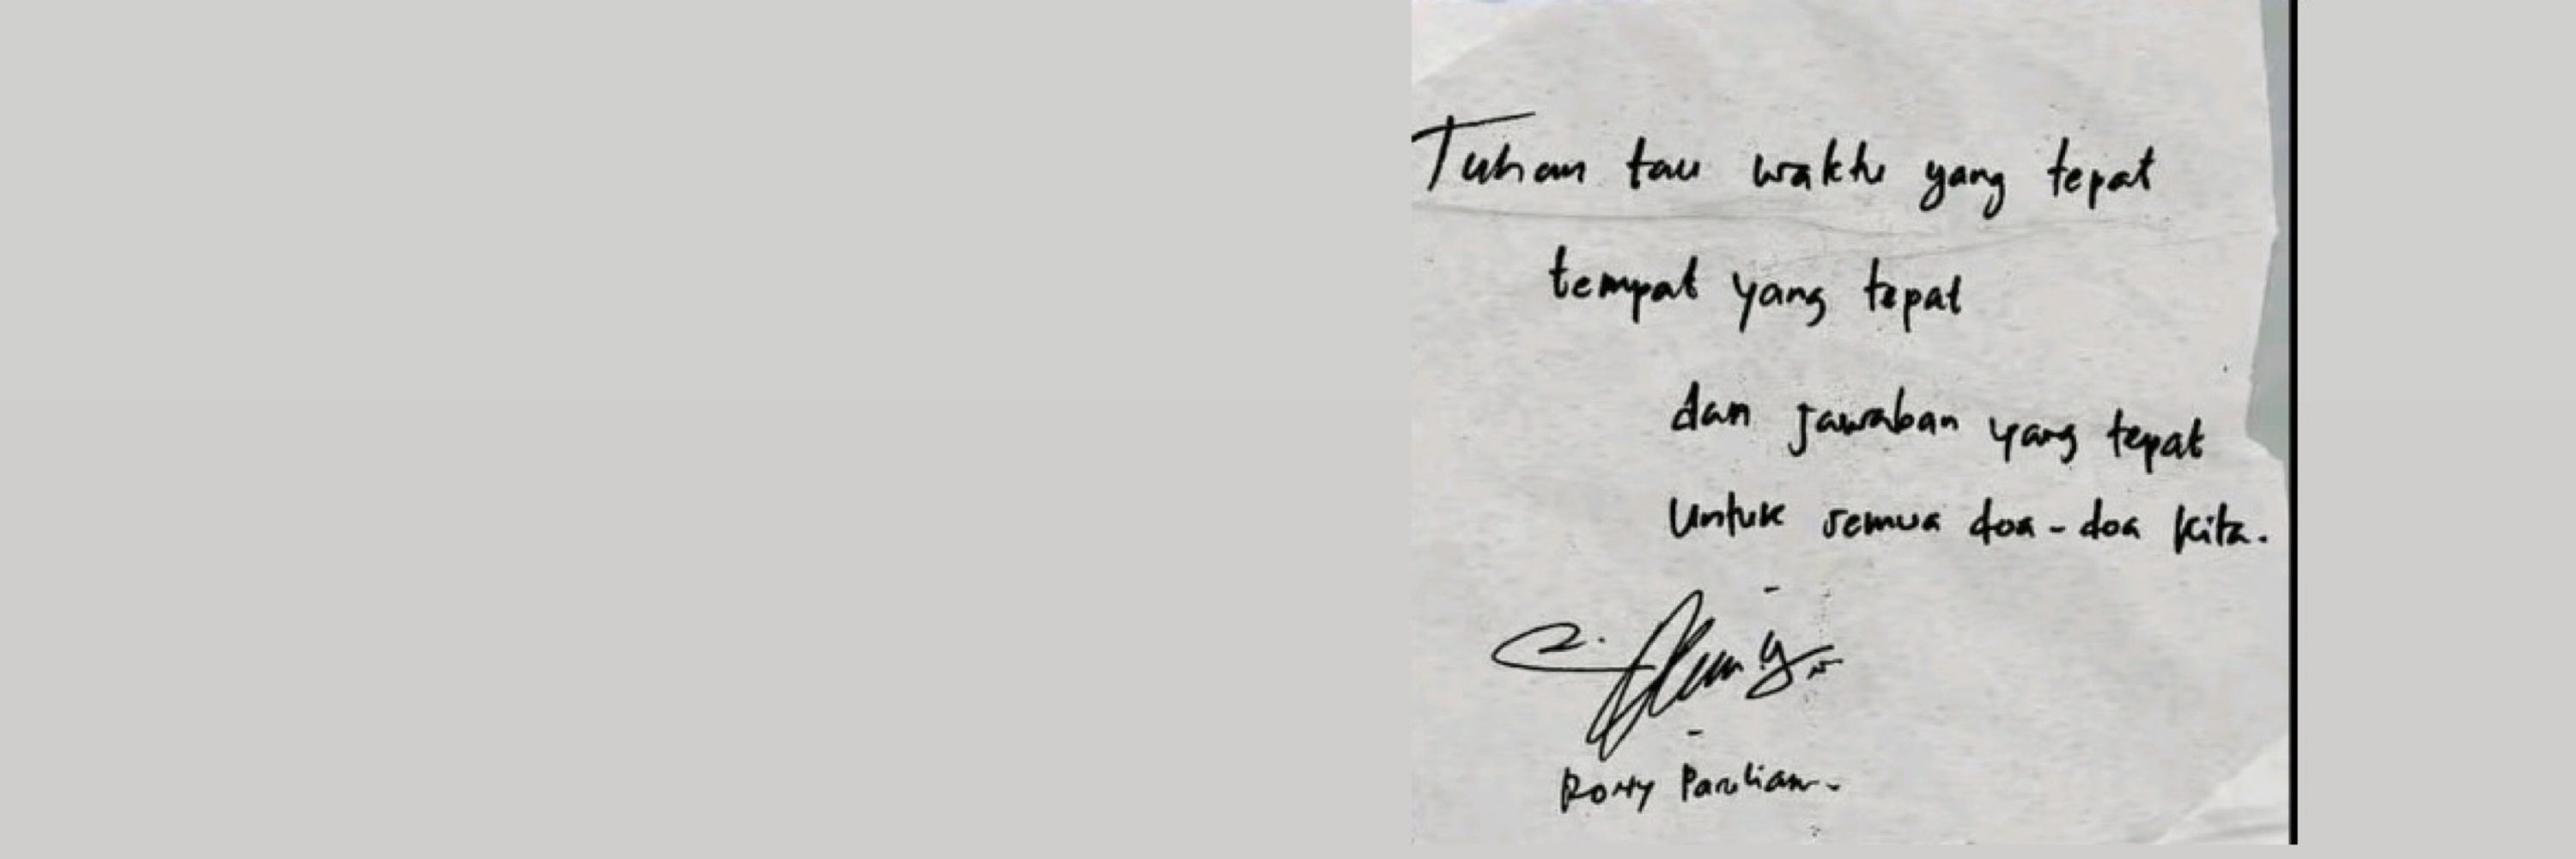 Tuhan tau waktu yang tepat
tempat yang tepat
dan jawaban yang tepat
untuk semua doa-doa kita.
Parulian